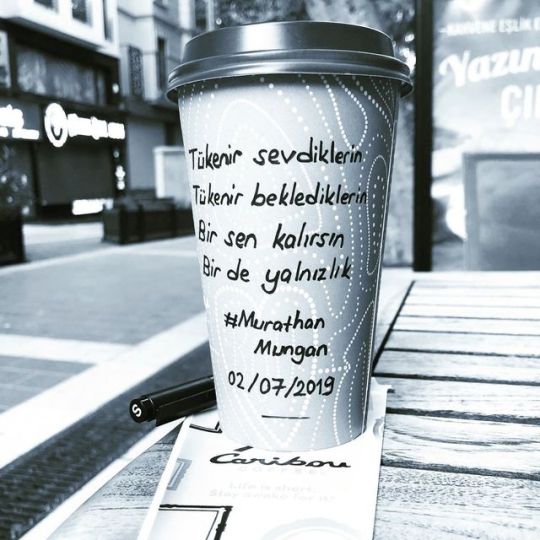 Tükenir sevdiklerin
Tükenir beklediklerin
Bir sen kalırsın
Bir de yalnızlık
#Murathan
Mungan
02/07/2019
Caribou
COFFEE
Life is short.
Stay awake for it.
S
Yazın